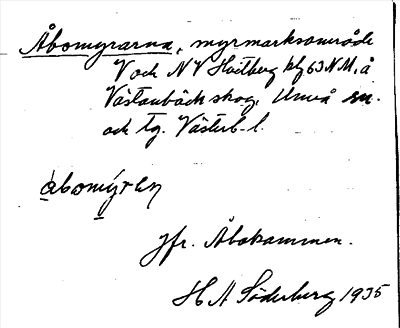 Åbomyrarna, myrmarksområde
V och NV Hvitberg blg 63 NM. å
Västanbäck skog. Umeå sn.
och tg. Västerb. l.
åbomýrḁɳ
Jfr. Åbokammen.
H A Söderberg 1935